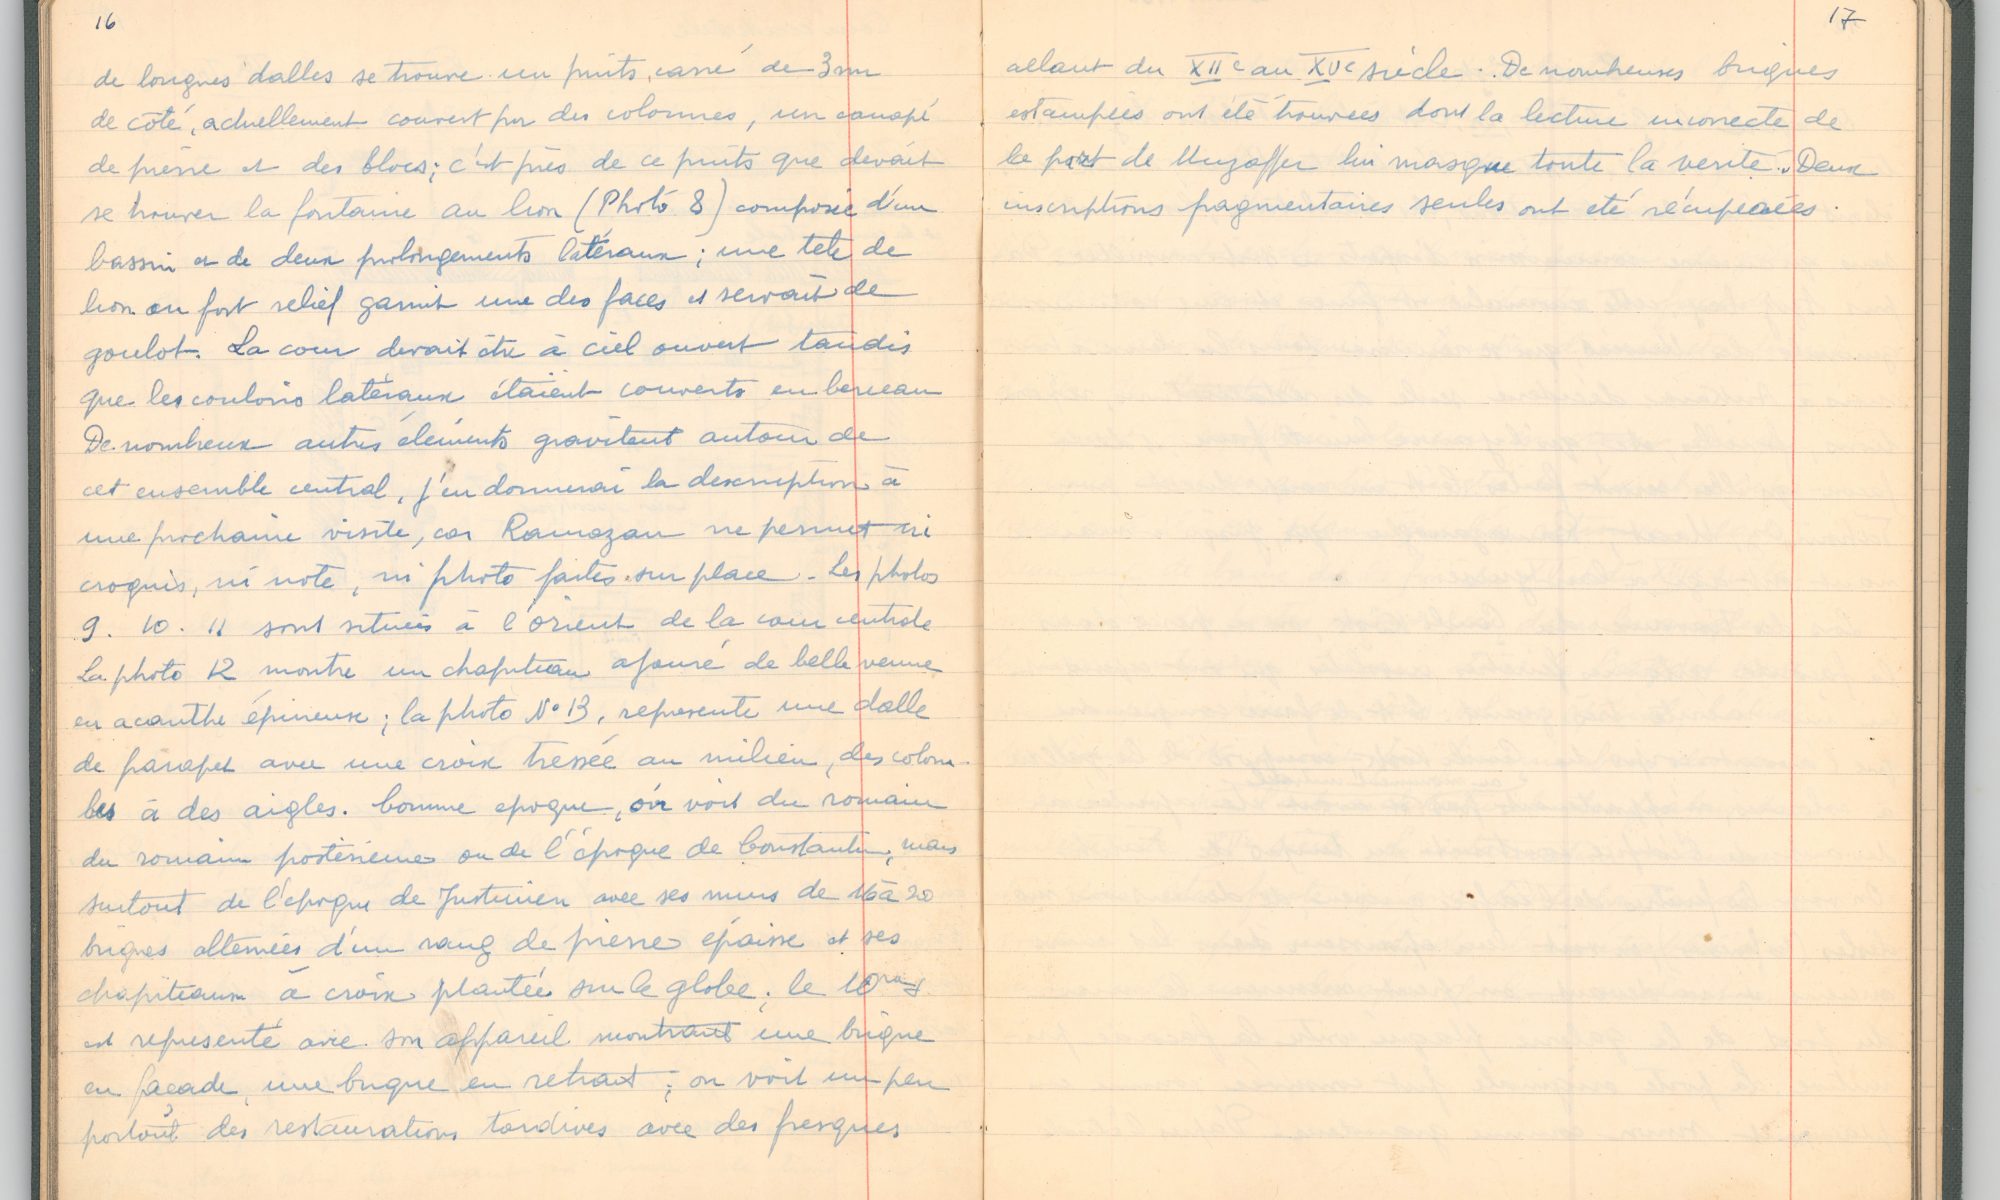 16
de longues dalles se trouve un puits carré de 3m
de côté, actuellement couvert par des colonnes, un canapé
de pierre et des blocs; c'est près de ce puits que devait
se trouver la fontaine au lion (Photo 8) composée d'un
bassin et de deux prolongements latéraux; une tete de
lion en fort relief garnit une des faces et servait de
goulot. La cour devait être à ciel ouvert tandis
que les couloirs latéraux étaient couverts en berceau
De nombreux autres éléments gravitent autour de
cet ensemble central, j'en donnerai la description à
une prochaine visite, car Ramazan ne permet ni
croquis, ni note, ni photo faites sur place. Les photos
9. 10. 11 sont situées à l'orient de la cour centrale
La photo 12 montre un chapiteau ajouré de belle venue
en acanthe épineuse; la photo No 13, represente une dalle
de parapet avec une croix tressée au milieu, des colom-
bes à des aigles. Comme epoque, on voit du romain
du romain posterieur ou de l'époque de Constantin, mais
surtout de l'epoque de Justinien avec ses murs de 16 à 20
briques alternées d'un rang de pierre épaisse et ses
chapiteaux à croix plantée sur le globe; le 10
est representé avec son appareil montrant une brique
en façade, une brique en retrait; on voit un peu
partout des restaurations tardives avec des fresques
17
allant du XIIe au XVe siècle. De nombreuses briques
estampées ont été trouvées dont la lecture incorrecte de
la part de Muzaffer lui masque toute la verité. Deux
inscriptions fragmentaires seules ont eté récupérées.